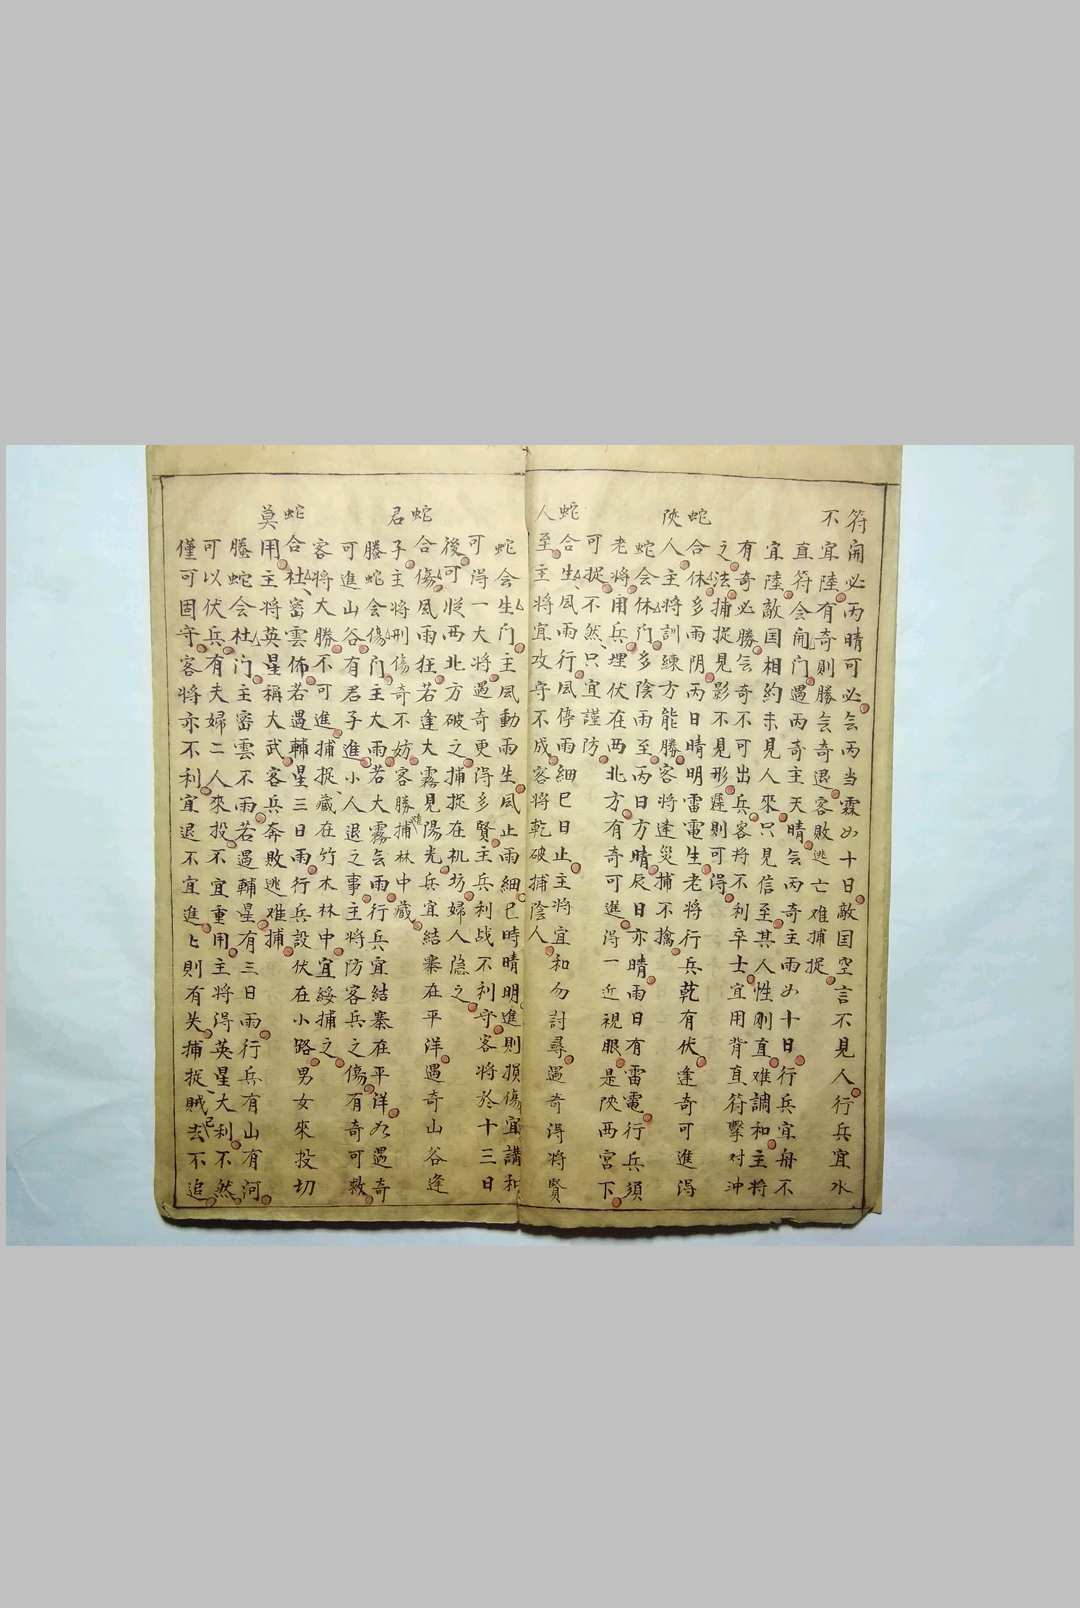 符開必丙晴可必会丙当霖如十日敵国空言不見人行兵宜水
不宜陸有奇則勝会奇退客敗逃亡难捕捉
直符会開门遇丙奇主天晴会丙奇主雨如十日行兵宜舟不
宜陸敵国相約未見人來只見信至其人性剛直难調和主將
有奇必勝会奇不可出兵客將不利卒士宜用背直符擊对沖
之法捕捉見影不見形遲則可得
蛇合休多雨阴丙日晴明雷電生老將行兵乾有伏逢奇可進得
陝人主將訓練方能勝客將逢災捕不擒
蛇会休门多陰雨至丙日方晴辰日亦晴雨日有雷電行兵須
老將用兵埋伏在西北方有奇可進得一近視眼是陝西宮下
可捉不然只宜謹防
蛇合生風雨行風停雨細巳日止主將宜和勿討尋遇奇得將賢
人至主將宜攻守不成客將乾破捕陰人
蛇会生门主風動雨生風止雨細巳時晴明進則損傷宜講和
可得一大將遇奇更得多賢主兵利战不利守客將於十三日
後可從西北方破之捕捉在机坊婦人隐之
蛇合傷風雨狂若逢大霧見陽光兵宜結寨在平洋遇奇山谷逢
君子主將刑傷奇不妨客勝捕林中藏
螣蛇会傷门主大雨若大霧会雨行兵宜結寨在平洋如遇奇
可進山谷有君子進小人退之事主將防客兵之傷有奇可救
客將大勝不可進捕捉藏在竹木林中宜綏捕之
蛇合杜密雲佈若遇輔星三日雨行兵設伏在小路男女來投切
莫用主將英星稱大武客兵奔敗逃难捕
螣蛇会杜门主密雲不雨若遇輔星有三日雨行兵有山有河
可以伏兵有夫婦二人來投不宜重用主將得英星大利不然
僅可固守客將亦不利宜退不宜進ヒ則有失捕捉賊已去不追